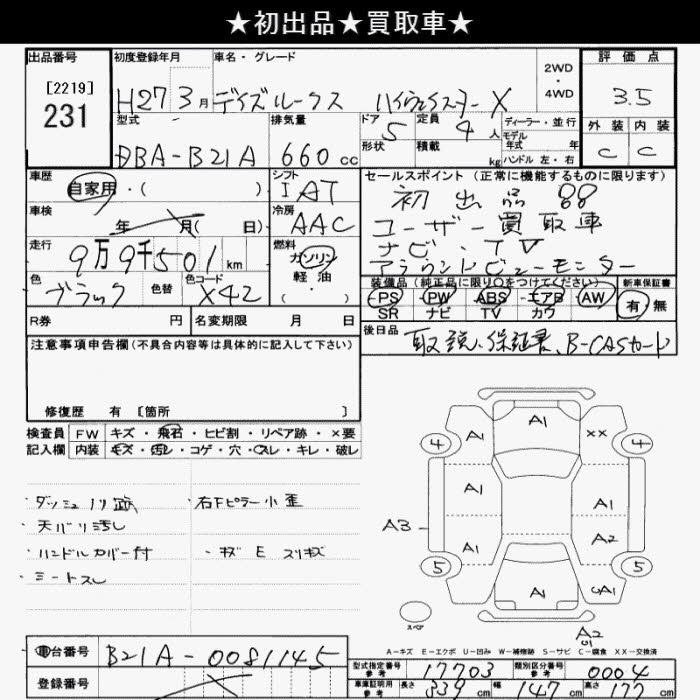 ★初出品★買取車★
出品番号
[2219]
231
初度登録年月
H27 3月
車名・グレード
デイズルークス ハイウェイスター X
2WD
・
4WD
評価点
3.5
外装 内装
C C
型式
DBA-B21A
排気量
660cc
ドア
5
形状
定員
4人
積載
kg
ディーラー・並行
モデル
年式 年
ハンドル 左・右
車歴
自家用・( )
シフト
IAT
車検
年 月( 日)
冷房
AAC
走行
9万9千501km
燃料
ガソリン
軽油
・
( )
色
ブラック
色替
色コード
X42
セールスポイント(正常に機能するものに限ります)
初出品
ユーザー買取車
ナビ・TV
アラウンドビューモニター
装備品(純正品に限り○をつけてください)
PS PW ABS エアB AW
SR ナビ TV カワ
新車保証書
有 無
R券 円
名変期限 月 日
後日品
取説、保証書、B-CASカード
注意事項申告欄(不具合内容等は具体的に記入して下さい)
修復歴 有 [箇所 ]
検査員
記入欄
FW キズ・飛石・ヒビ割・リペア跡・×要
内装 キズ・汚レ・コゲ・穴・スレ・キレ・破レ
・ダッシュノリ跡
・天バリ汚レ
・ハンドルカバー付
・シートスレ
右Fピラー小歪
・キズ E スリキズ
A1
4 A1 XX 4
A1 A1
A3
A1 A2
5 A1 5
スペア
A2
A-キズ E-エクボ U-凹み W-補修跡 S-サビ C-腐食 XX-交換済
車台番号
B21A-0081145
登録番号
型式指定番号
参考
17703
類別区分番号
参考
0004
車庫証明用
参考
長さ 339cm 幅 147cm 高さ 177cm